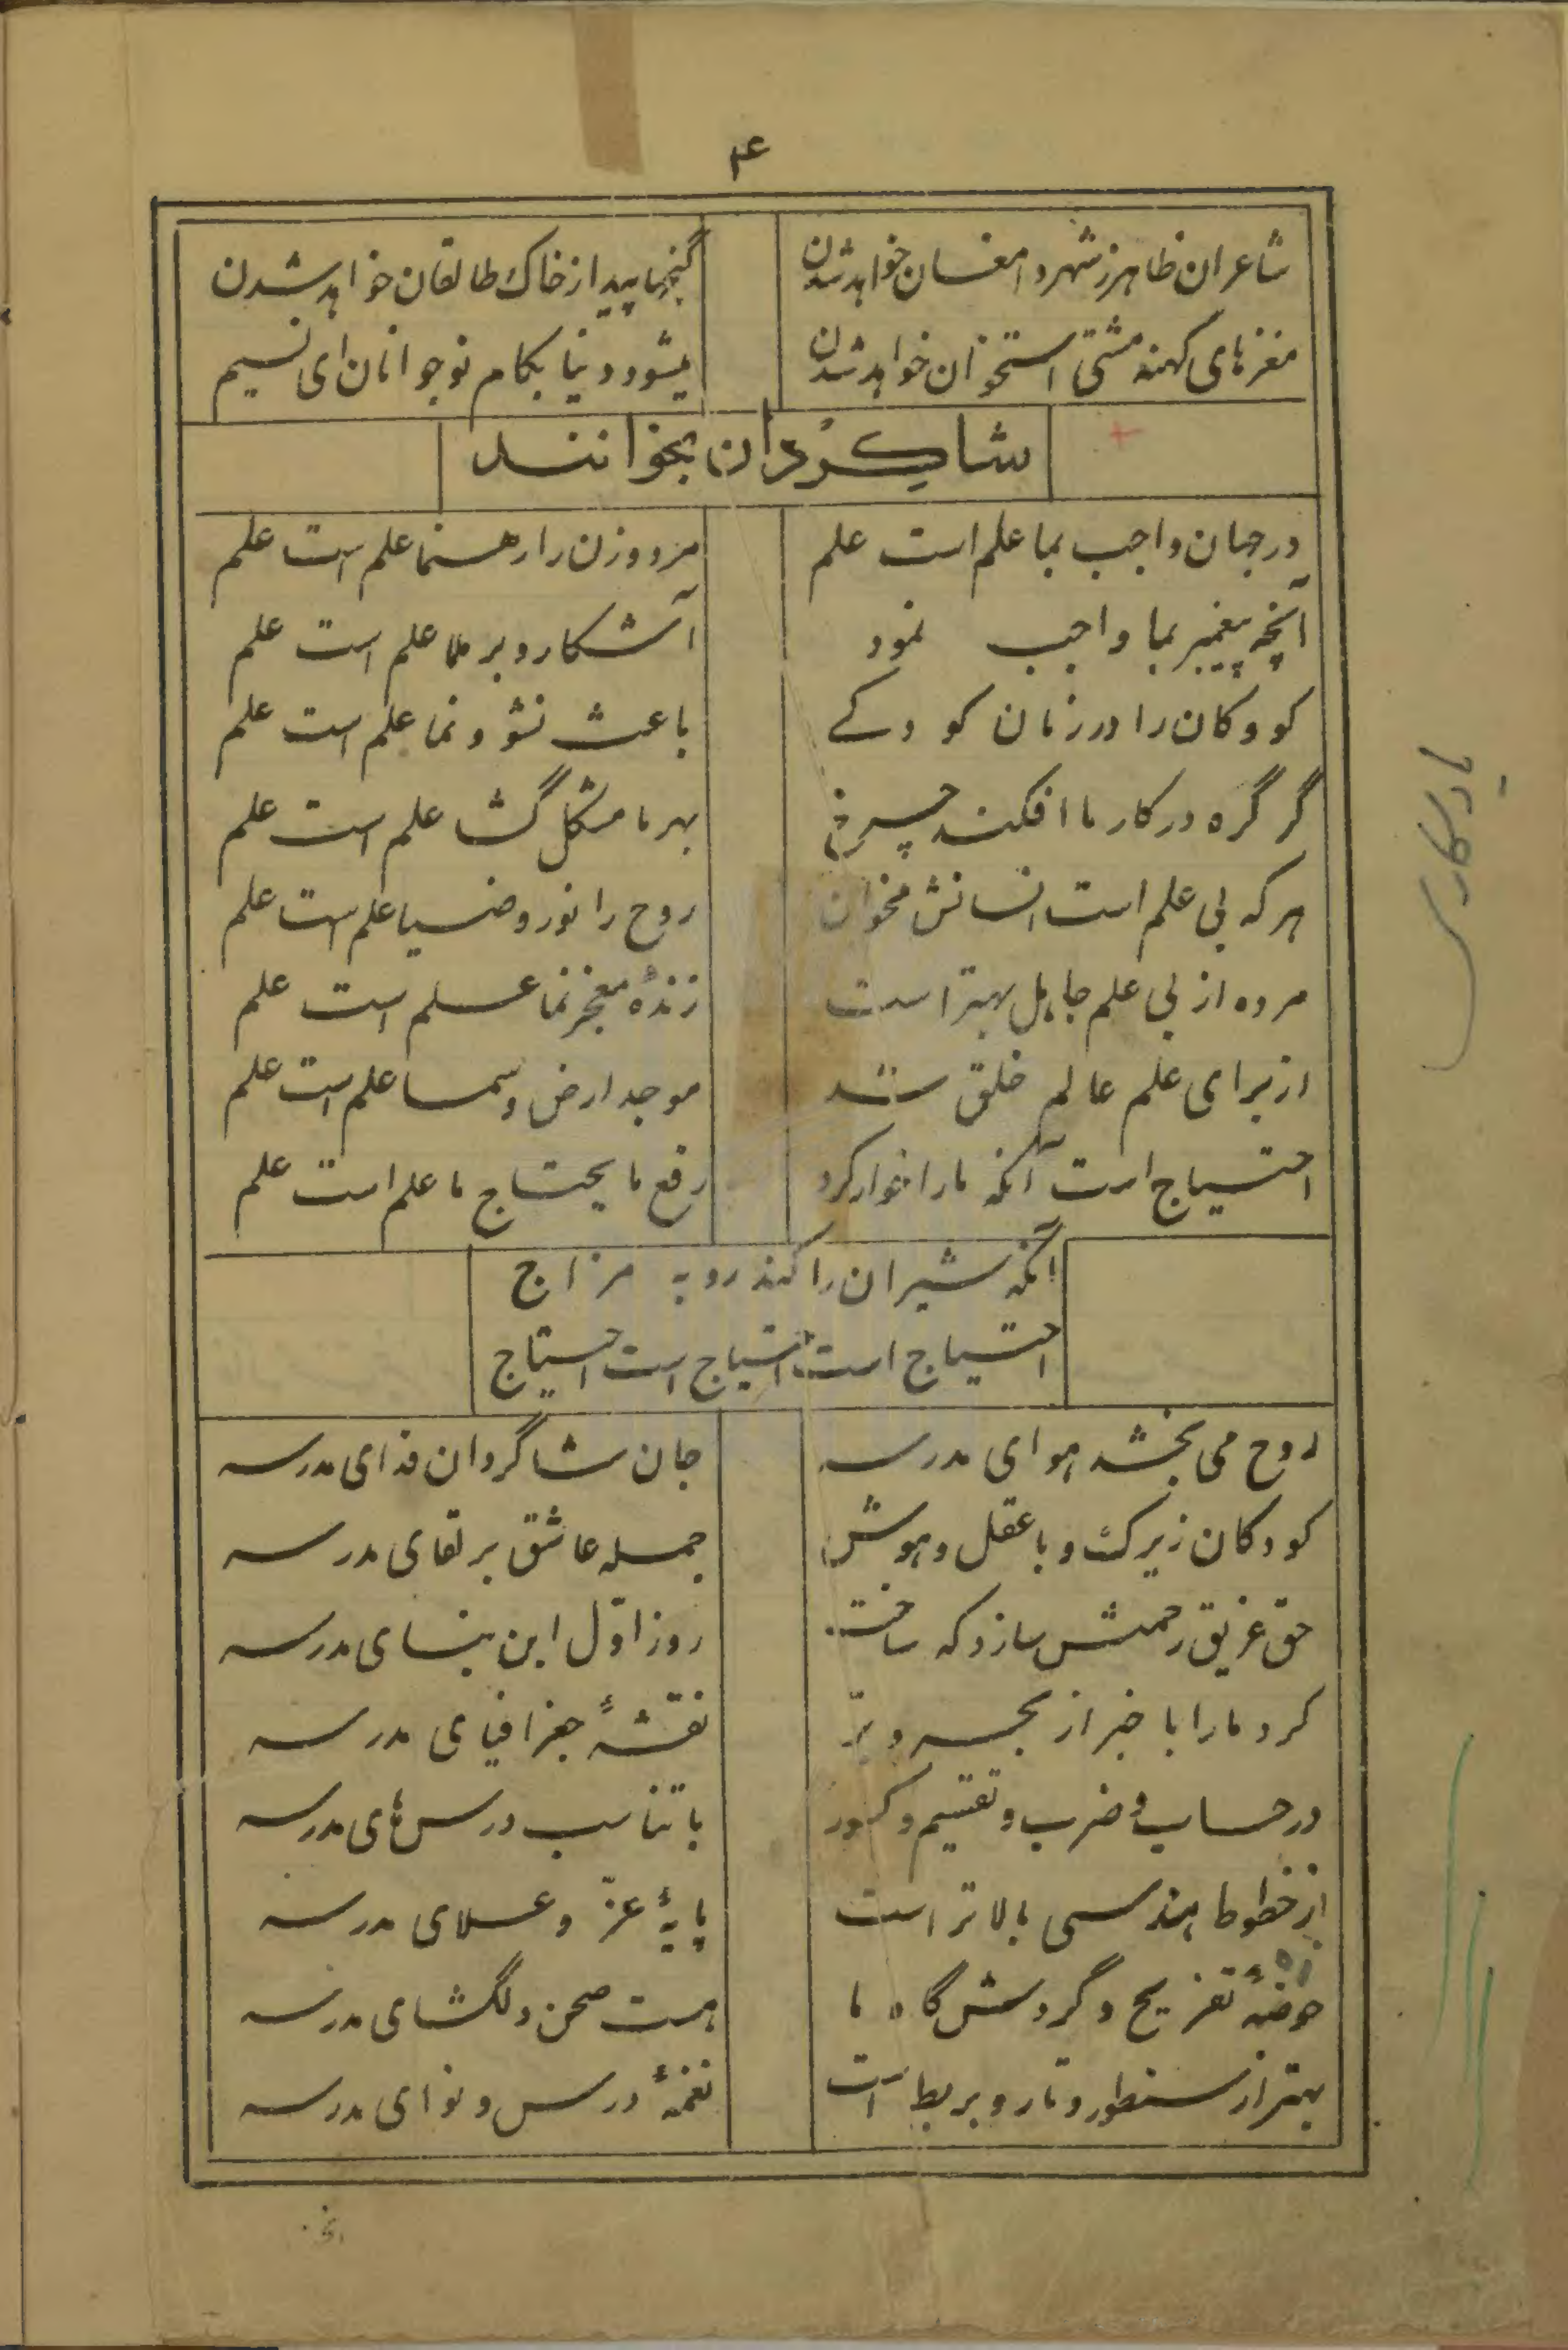 ۴
شاعران ظاهر ز شهر دامغان خواهد شدن گنجها پیدا ز خاک طالقان خواهد شدن
مغزهای کهنه مشتی استخوان خواهد شدن میشود دنیا بکام نوجوانان ای نسیم
شاگردان بخوانند
در جهان واجب بما علم است علم مرد و زن را رهنما علم است علم
آنچه پیغمبر بما واجب نمود آشکار و بر ملا علم است علم
کودکان را در زمان کودکے باعث نشو و نما علم است علم
گر گره در کار ما افکند چرخ بهر ما مشکل گشا علم است علم
هر که بی علم است انسانش مخوان روح را نور و ضیا علم است علم
مرده از بی علم جاهل بهتر است زندهٔ معجز نما علم است علم
از برای علم عالم خلق شد موجد ارض و سما علم است علم
احتیاج است آنکه ما را خوار کرد رفع ما یحتاج ما علم است علم
آنکه شیران را کند روبه مزاج
احتیاج است احتیاج است احتیاج
روح می بخشد هوای مدرسه جان شاگردان فدای مدرسه
کودکان زیرک و با عقل و هوش جمله عاشق بر لقای مدرسه
حق غریق رحمتش سازد که ساخت روز اوّل این بنای مدرسه
کرد ما را با خبر از بحر و برّ نقشهٔ جغرافیای مدرسه
در حساب و ضرب و تقسیم و کسور با تناسب درس های مدرسه
از خطوط هندسی بالاتر است پایهٔ عزّ و علای مدرسه
تفریح و گردش گاه ما هست صحن دلگشای مدرسه
بهتر از سنطور و تار و بربط است نغمهٔ درس و نوای مدرسه